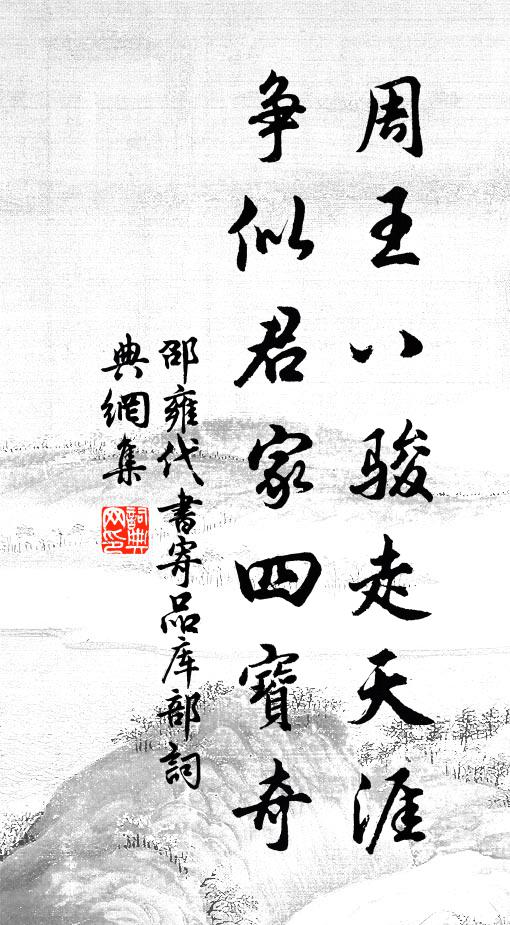 周王八骏走天涯
争似君家四寶奇
邵雍代書寄品库部詞
典網集
詞典
网印